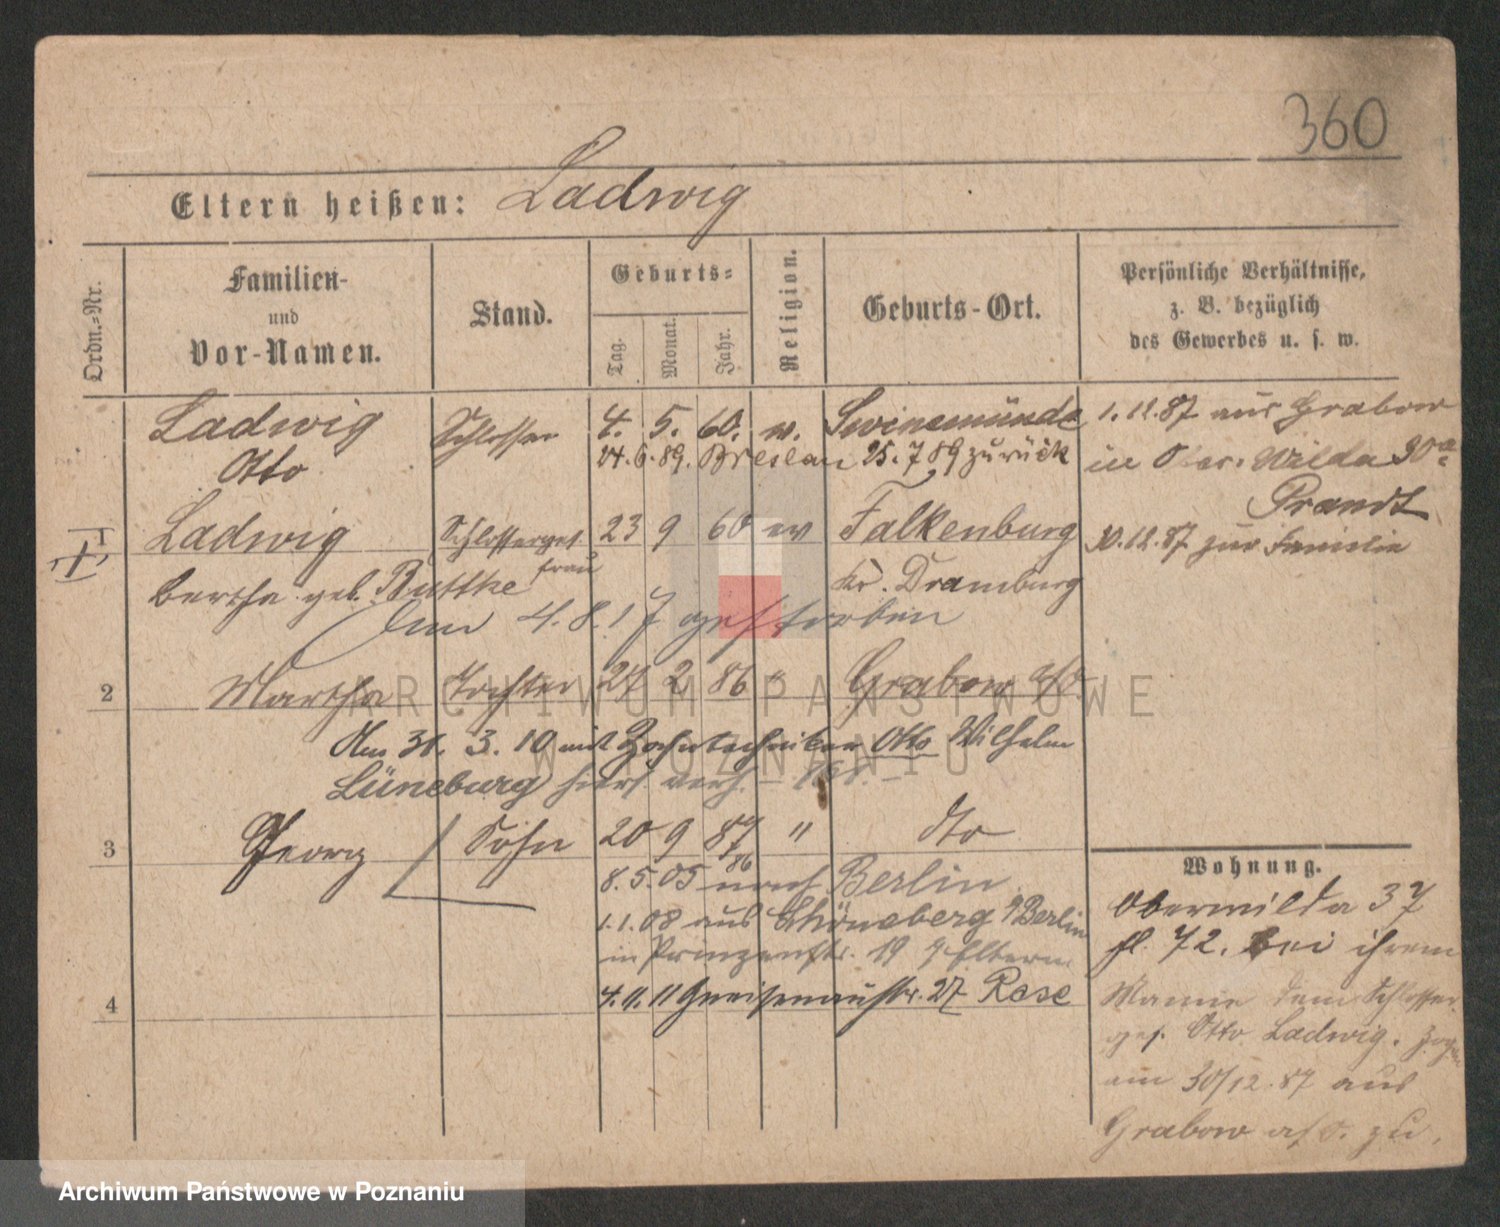 360
Eltern heißen: Ladwig
Ordn.-Nr.
Familien-
und
Vor-Namen.
Stand.
Geburts-
Tag.
Monat.
Jahr.
Religion.
Geburts-Ort.
Persönliche Verhältnisse,
z. B. bezüglich
des Gewerbes u. s. w.
Ladwig Schlosser 4. 5. 60. ev. Swinemünde
Otto 24. 6. 89. Breslau 25. 7 89 zurück
1. 11. 87 aus Grabow
in Ober. Wilda 30a
Prandt
30.12.87 zur Familie
1 Ladwig Schlosserges. 23 9 60 ev Falkenburg
frau
Bertha geb. Buttke Kr. Dramburg
Am 4. 8. 17 gestorben
2 Martha Tochter 27 2 86 " Grabow a/O
Am 31. 3. 10 mit Zahntechniker Otto Wilhelm
Lüneburg hier verh.
3 Georg Sohn 20 9 87 " dto
86
8. 5. 05 nach Berlin
1. 1. 08 aus Schöneberg Berlin
in Prinzenstr. 19 Eltern
4 4. 11. 11 Gneisenaustr. 27 Rose
Wohnung.
Oberwilda 37
fl. 72. bei ihrem
Manne dem Schlosser
ges. Otto Ladwig.
am 30/12.87 aus
Grabow a/O. zu.
ARCHIWUM PAŃSTWOWE
W POZNANIU
Archiwum Państwowe w Poznaniu